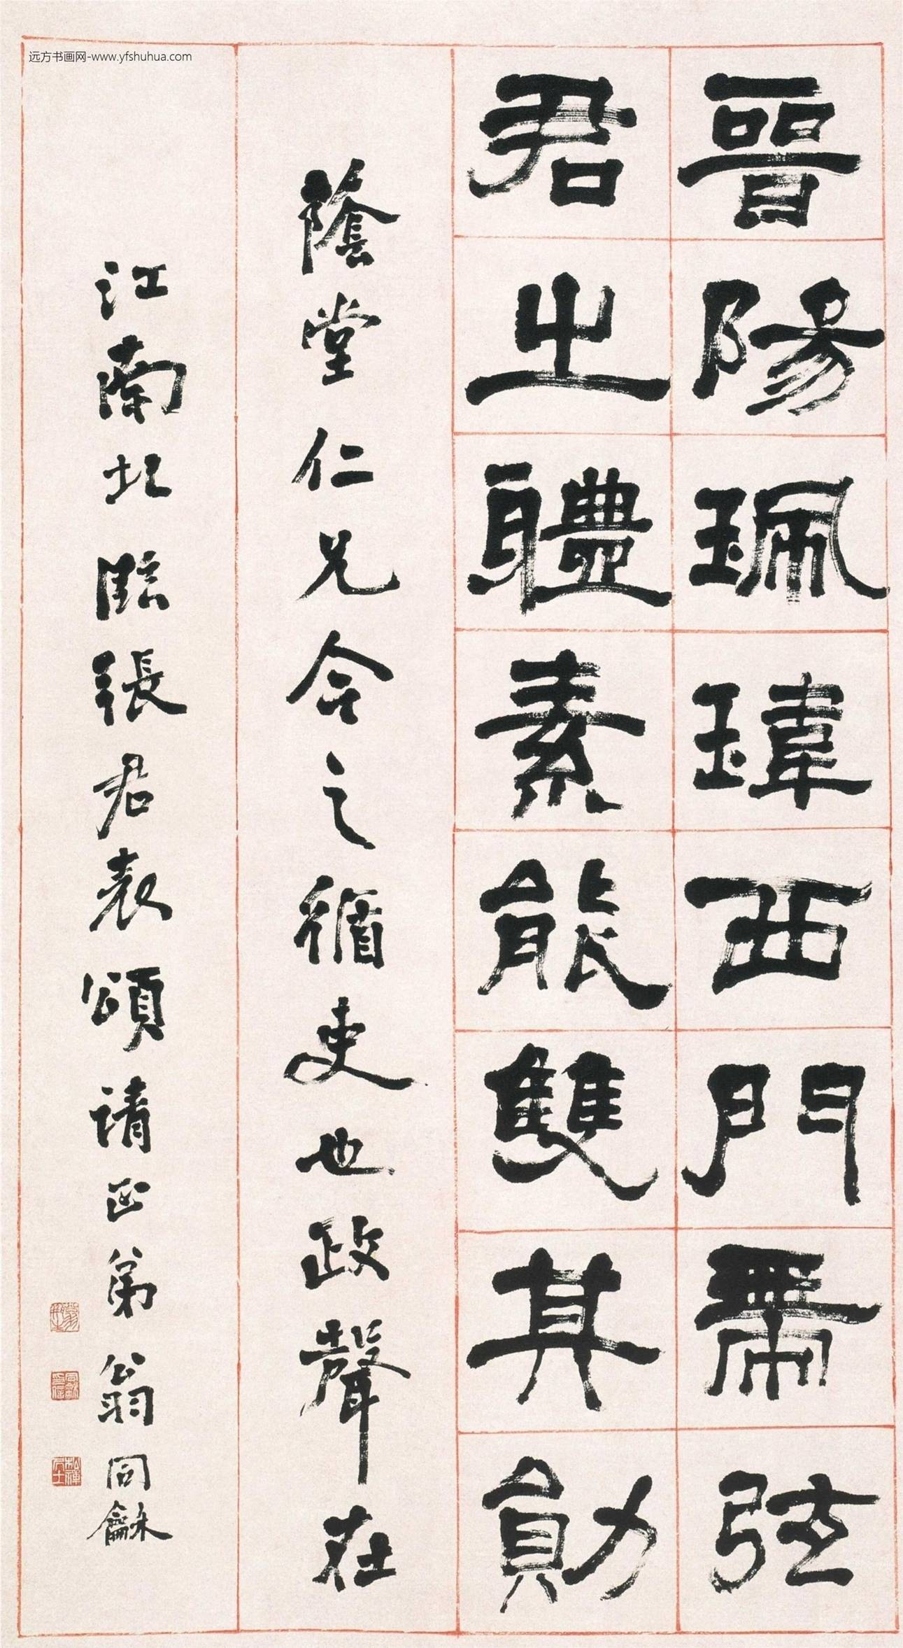 晉陽珮瑋西門帶弦
君之體素能雙其勛
蔭堂仁兄今之循吏也政聲在
江南北臨張君表頌請正弟翁同龢
远方书画网-www.yfshuhua.com